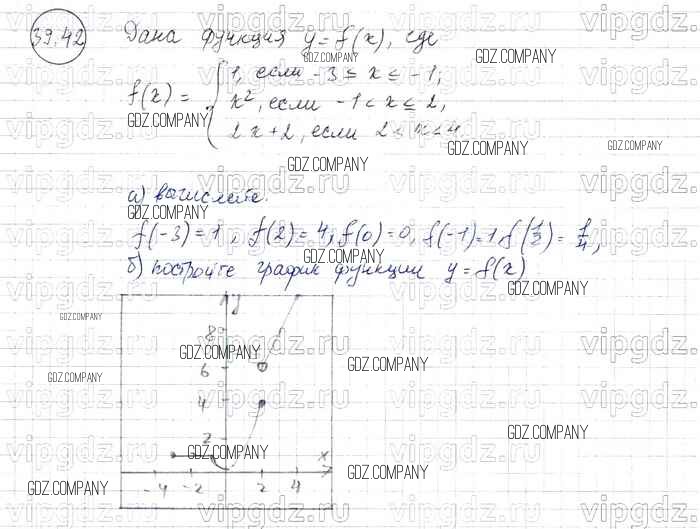 39.42 Дана функция y = f(x), где
f(x) = { 1, если -3 ≤ x ≤ -1,
x², если -1 < x ≤ 2,
2x+2, если 2 < x ≤ 4.
а) вычислите.
f(-3)=1, f(2)=4, f(0)=0, f(-1)=1, f(1/2)=1/4,
б) постройте график функции y = f(x)
y
8
6
4
2
x
-4 -2 2 4
vipgdz.ru
GDZ.COMPANY